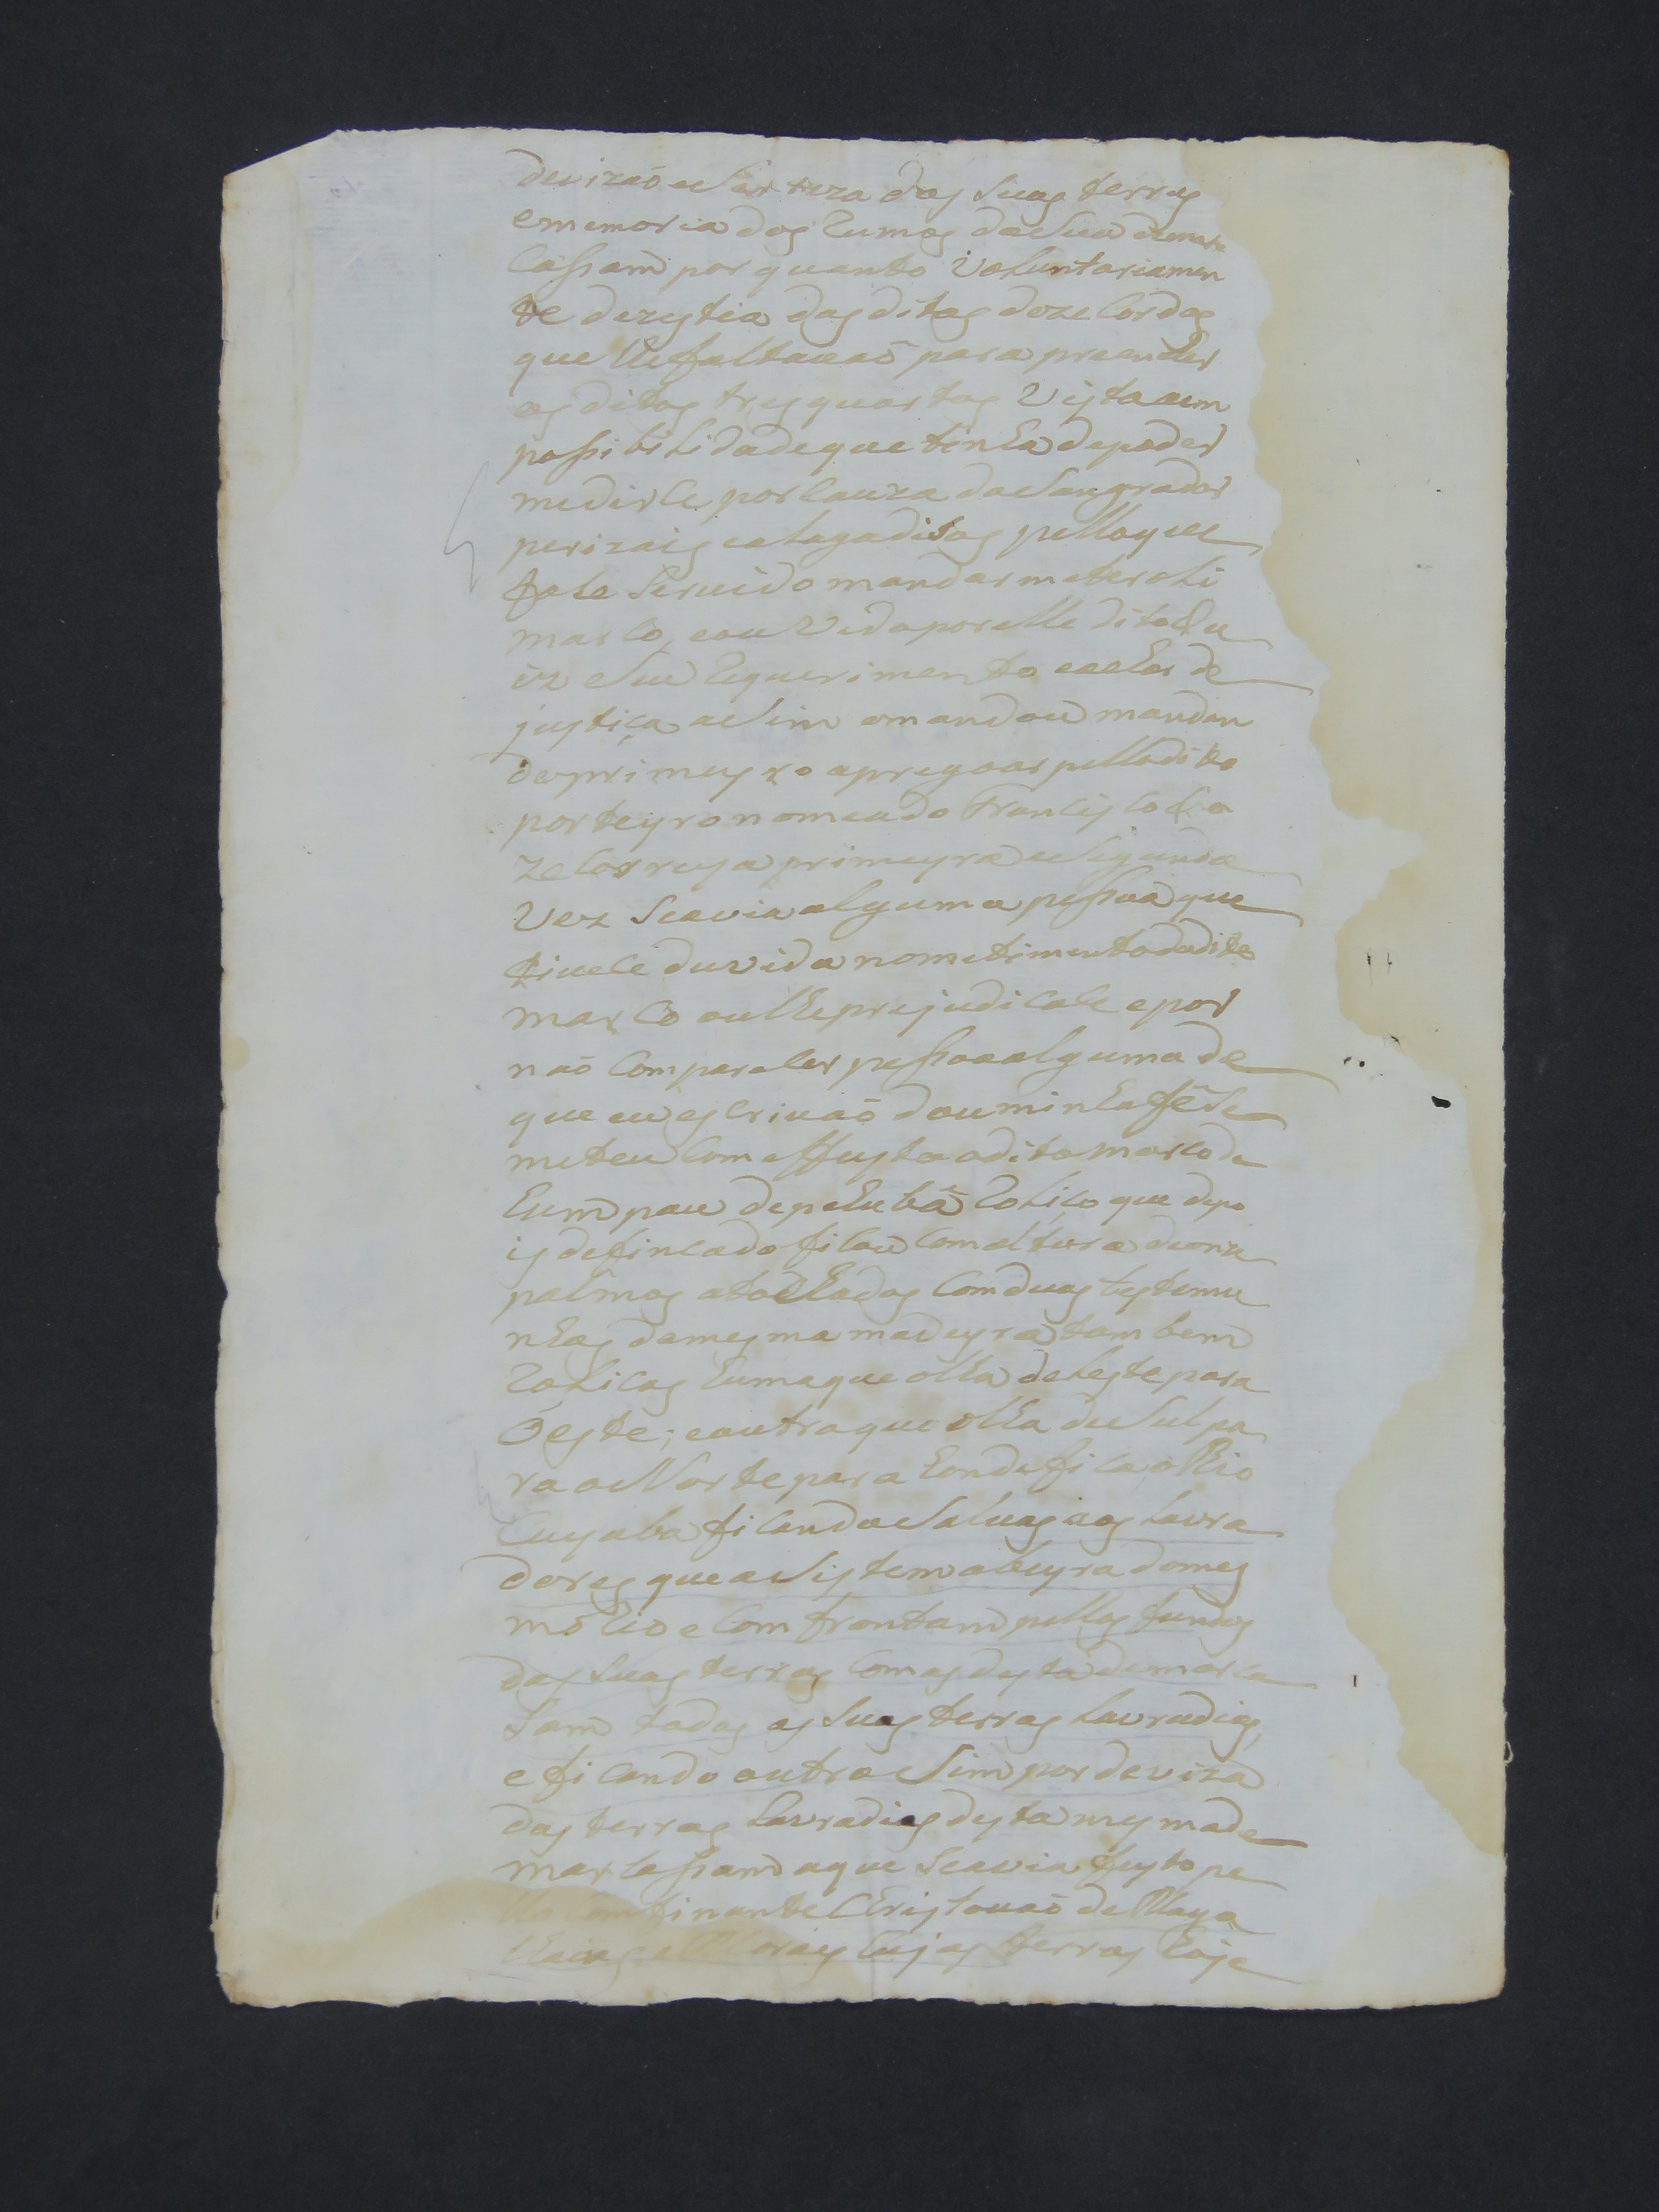 devizaõ e Serteza das Suas terras
ememoria dos Rumos da Sua demar
Cassam por quanto Voluntariamen
te dezestia das ditas doze Cordas
que lhe faltavaõ para preencher
os ditos tres quartos Vista a em
possibilidade que tinha de poder
medirce por cauza do Sangrador
perizais e alagadisos pello que
foce Servido mandar meter ali
marco, e ouvido por elle dito Ju
iz o Seu Requerimento e achar de
justiça a Sim o mandou mandan
do primeyro apregoar pello dito
porteyro nomeado Francisco Jo
ze Correya primeyra e Segunda
Vez Se avia alguma pessoa que
tivece duvida no metimento do dito
marco ou lhe prejudicace e por
naõ Comparecer pessoa alguma de
que eu escrivaõ dou minha fé Se
meteu Com effeyto o dito marco de
hum pau de pehuba Roliço que depo
is de fincado ficou Com altura de onze
palmos atochados Com duas testemu
nhas da mesma madeyra tambem
Roliças huma que olha de Leste para
Oeste; e outra que olha do Sul pa
ra o Norte para honde fica o Rio
Cuyaba ficando Salvas aos Lavra
dores que a Sistem a beyra do mes
mo Rio e Com frontam pellos fundos
das Suas terras Com as desta demarca
Sam todas as Suas terras Lavradias,
e ficando outro Sim por deviza
das terras Lavradias desta mesma de
marcassam a que Se avia feyto pe
llo Comfinante Christovaõ de Maya
e Moraes Cujas terras hoje